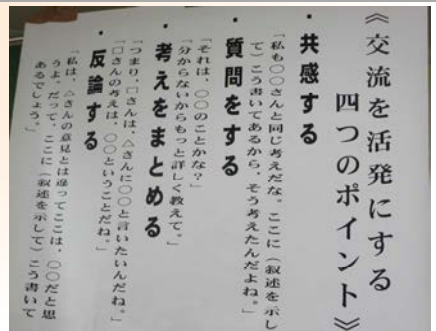 《交流を活発にする
四つのポイント》
・共感する
「私も〇〇さんと同じ考えだな。ここに(叙述を示し
て)こう書いてあるから、そう考えたんだよね。」
・質問をする
「それは、〇〇のことかな?」
「分からないからもっと詳しく教えて。」
・考えをまとめる
「つまり、□さんは、△さんに〇〇と言いたいんだね。」
「□さんの考えは、〇〇ということだね。」
・反論する
「私は、△さんの意見とは違ってここは、〇〇だと思
うよ。だって、ここに(叙述を示して)こう書いて
あるでしょう。」